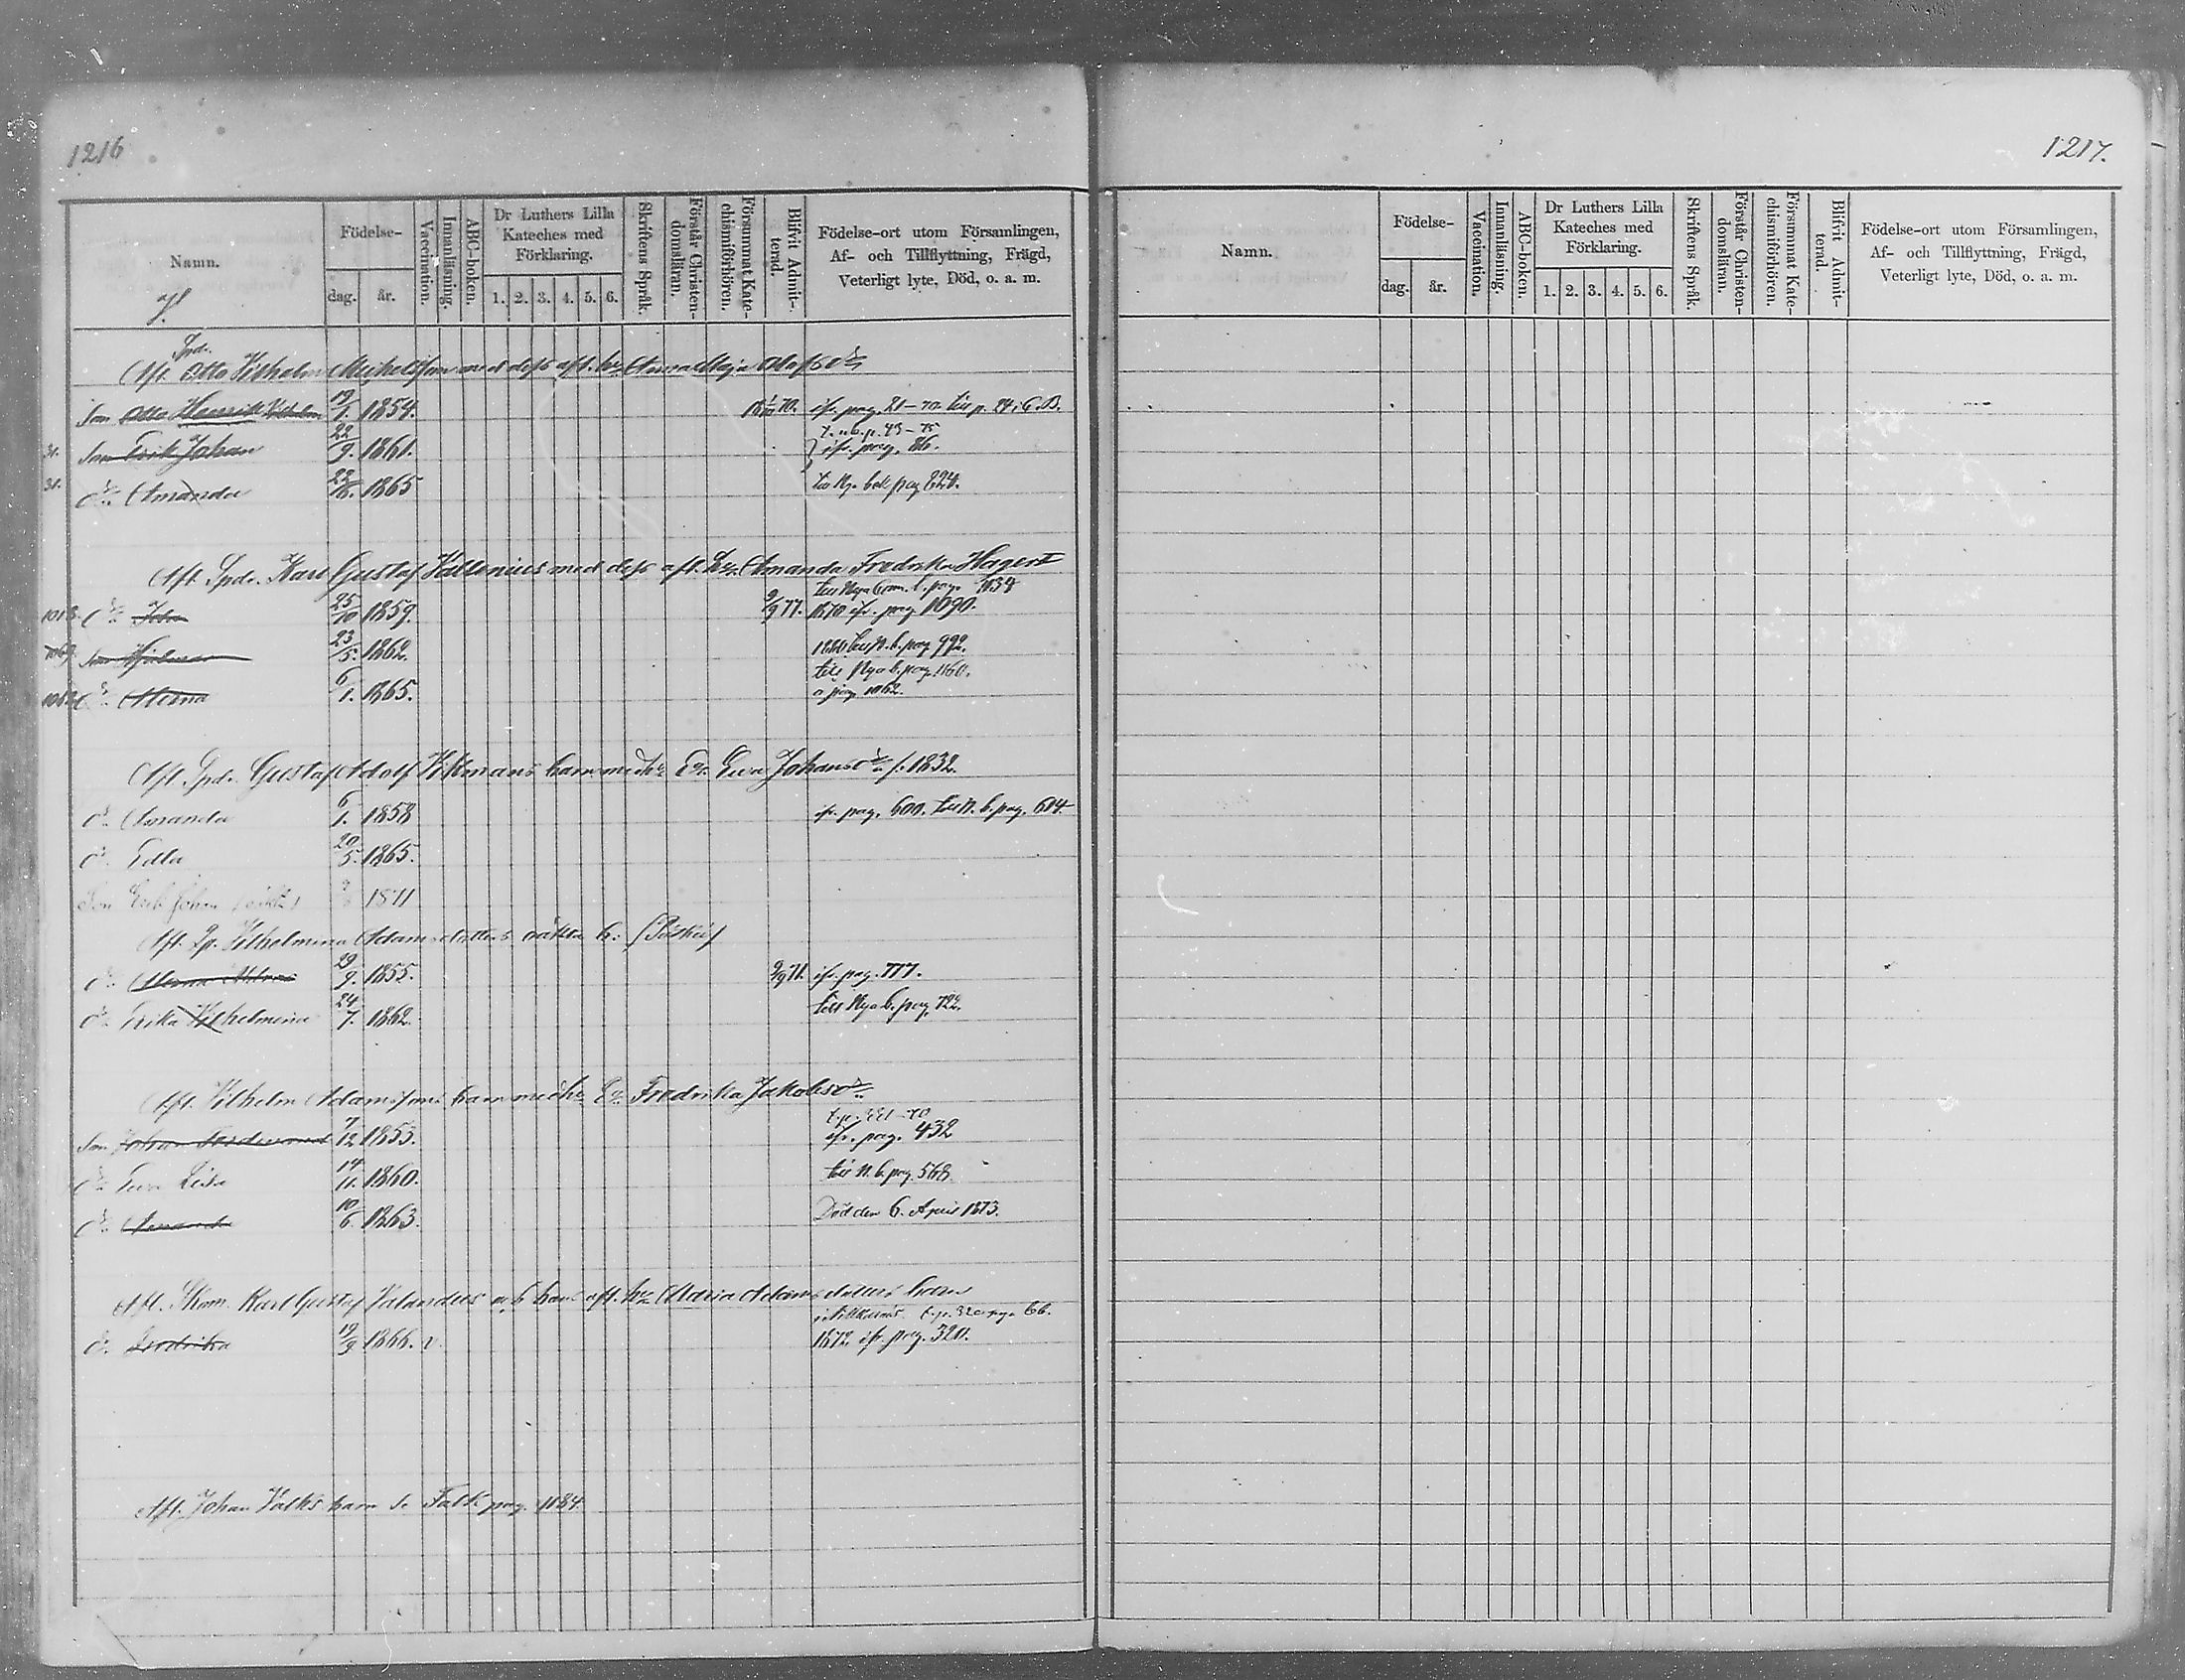 1216
Namn.
Födelse-
dag.
år.
Vaccination.
Innanläsning.
ABC-boken.
Dr Luthers Lilla
Kateches med
Förklaring.
1. 2. 3. 4. 5. 6.
Skriftens Språk.
Förstår Christen-
domsläran.
Försummat Kate-
chismiförhören.
Blifvit Admit-
terad.
Födelse-ort utom Församlingen,
Af- och Tillflyttning, Frägd,
Veterligt lyte, Död, o. a. m.
Aft. Otto Vilhelm Michelsson med dess aft. hu Anna Maja
Son Otto Henrik Vilhelm 19/1. 1854. cfr. pag. 21-70. till p. 24 i C.B.
p. 43-75
31. Son Erik Johan 22/9. 1861. cfr. pag. 86.
31. Amanda 1865 till Nya bok pag
Aft. Spdr. Karl Gustaf Vallenius med dess aft. hu Amanda Fredrika Hagert
25/10 1859. 9/9 77. 1870 cfr. pag 1090.
Son Hjalmar 23/5. 1862. till N. b. pag 992.
till Nya b. pag. 1160.
6/1. 1865. a pag. 1062.
Aft. Spdr. Gustaf Adolf barn med Eva Johansdr f. 1832.
dr. Amanda 6/1. 1858 cfr. pag. 600. till N. b. pag. 604.
dr. Edla 20/5. 1865.
Son Erik Johan 1871
Aft. Vilhelmina Adamsdotters oäkta b:
29/9. 1855. 9/9 71. cfr. pag. 777.
dr. Erika Vilhelmina 24/7. 1862. till Nya b. pag. 722.
Aft. Vilhelm Adamssons barn med Fredrika Jakobsdr
Son Johan Ferdinand 7/12 1853. cfr. pag. 432
dr Eva Lisa 14/11. 1860. till N. b. pag. 568.
dr. Amanda 10/6. 1863. Död den 6. April 1873.
Aft. Karl Gustaf Valanders och hans aft. hu Maria Adamsdotters barn
dr. Fredrika 19/9 1866. v. 1872. cfr. pag. 320.
Aft. Johan Valks barn se Falk pag. 1084.
1217.
Namn.
Födelse-
dag.
år.
Vaccination.
Innanläsning.
ABC-boken.
Dr Luthers Lilla
Kateches med
Förklaring.
1. 2. 3. 4. 5. 6.
Skriftens Språk.
Förstår Christen-
domsläran.
Försummat Kate-
chismiförhören.
Blifvit Admit-
terad.
Födelse-ort utom Församlingen,
Af- och Tillflyttning, Frägd,
Veterligt lyte, Död, o. a. m.